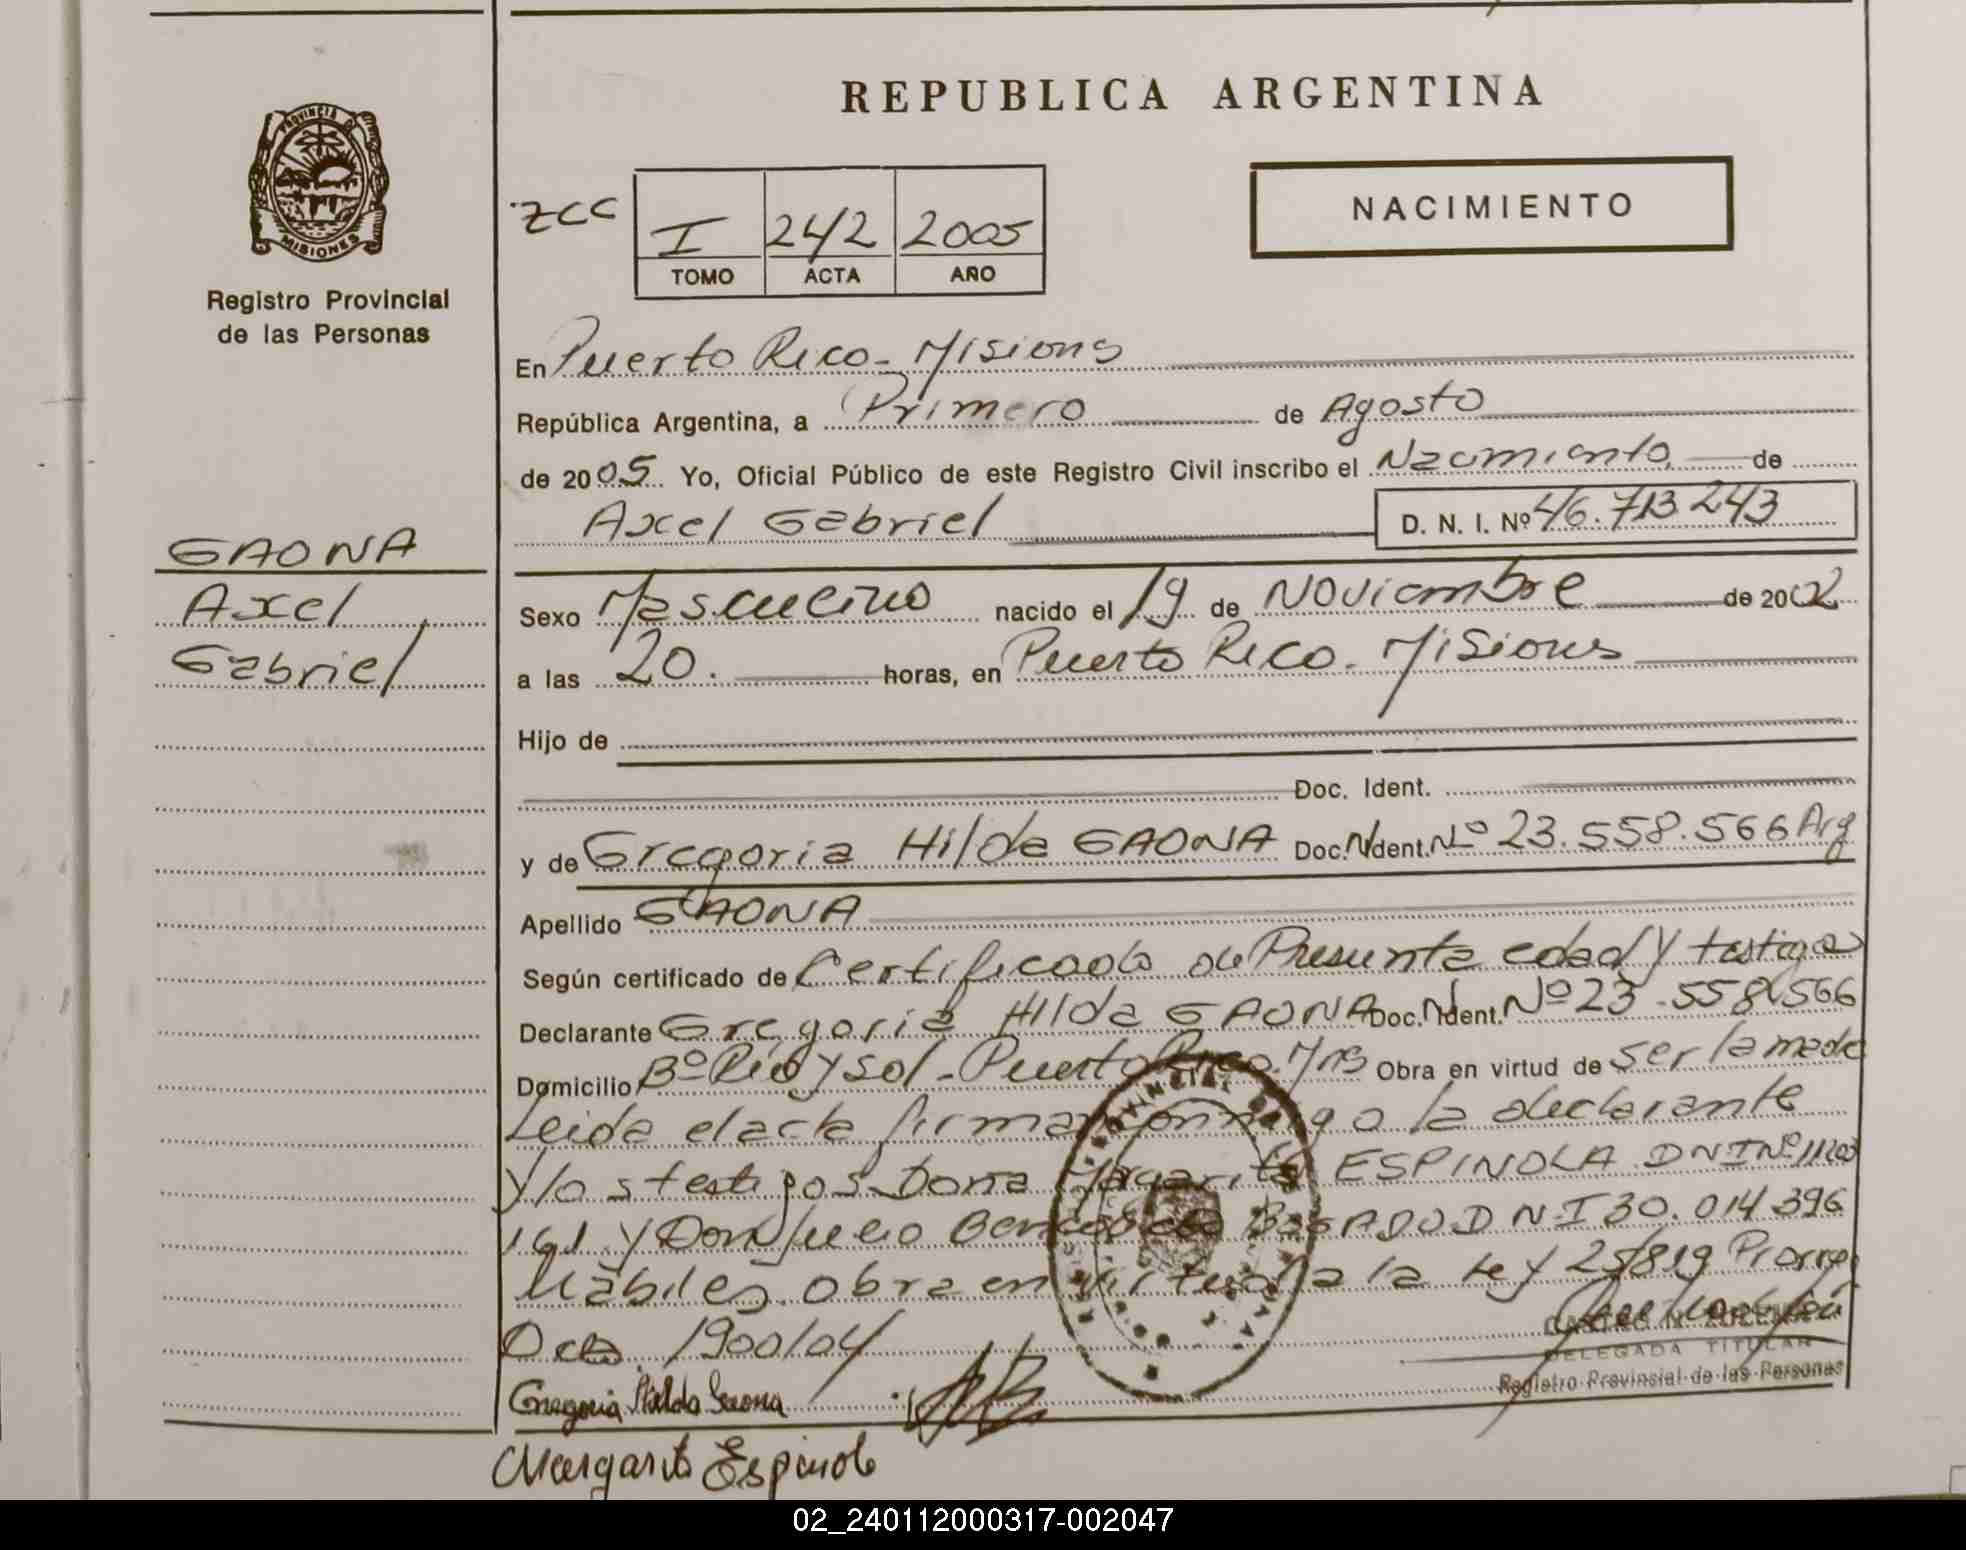 REPUBLICA ARGENTINA
PROVINCIA DE MISIONES
Registro Provincial
de las Personas
ZCC
I 242 2005
TOMO ACTA AÑO
NACIMIENTO
En Puerto Rico - Misiones
República Argentina, a Primero de Agosto
de 2005 Yo, Oficial Público de este Registro Civil inscribo el Nacimiento de
Axel Gabriel D. N. I. Nº 46.713.243
GAONA
Axel
Gabriel
Sexo Masculino nacido el 19 de Noviembre de 2002
a las 20. horas, en Puerto Rico. Misiones
Hijo de
Doc. Ident.
y de Gregoria Hilda GAONA Doc. Ident. Nº 23.558.566 Arg
Apellido GAONA
Según certificado de Certificado de Presunta edad y testigos
Declarante Gregoria Hilda GAONA Doc. Ident. Nº 23.558.566
Domicilio Bº Río y sol - Puerto Rico. Mns Obra en virtud de ser la madre
Leida el acta firman conmigo la declarante
y los testigos Dona Margarita ESPINOLA DNI Nº 11200
161 y Don Julio BOGADO DNI 30.014.396
Hábiles. obra en virtud a la Ley 25819 Prorrog
Dcto 1900/04
CASTRO N. AZUCENA
DELEGADA TITULAR
Registro Provincial de las Personas
Gregoria Hilda Gaona
Margarita Espinola
02_240112000317-002047